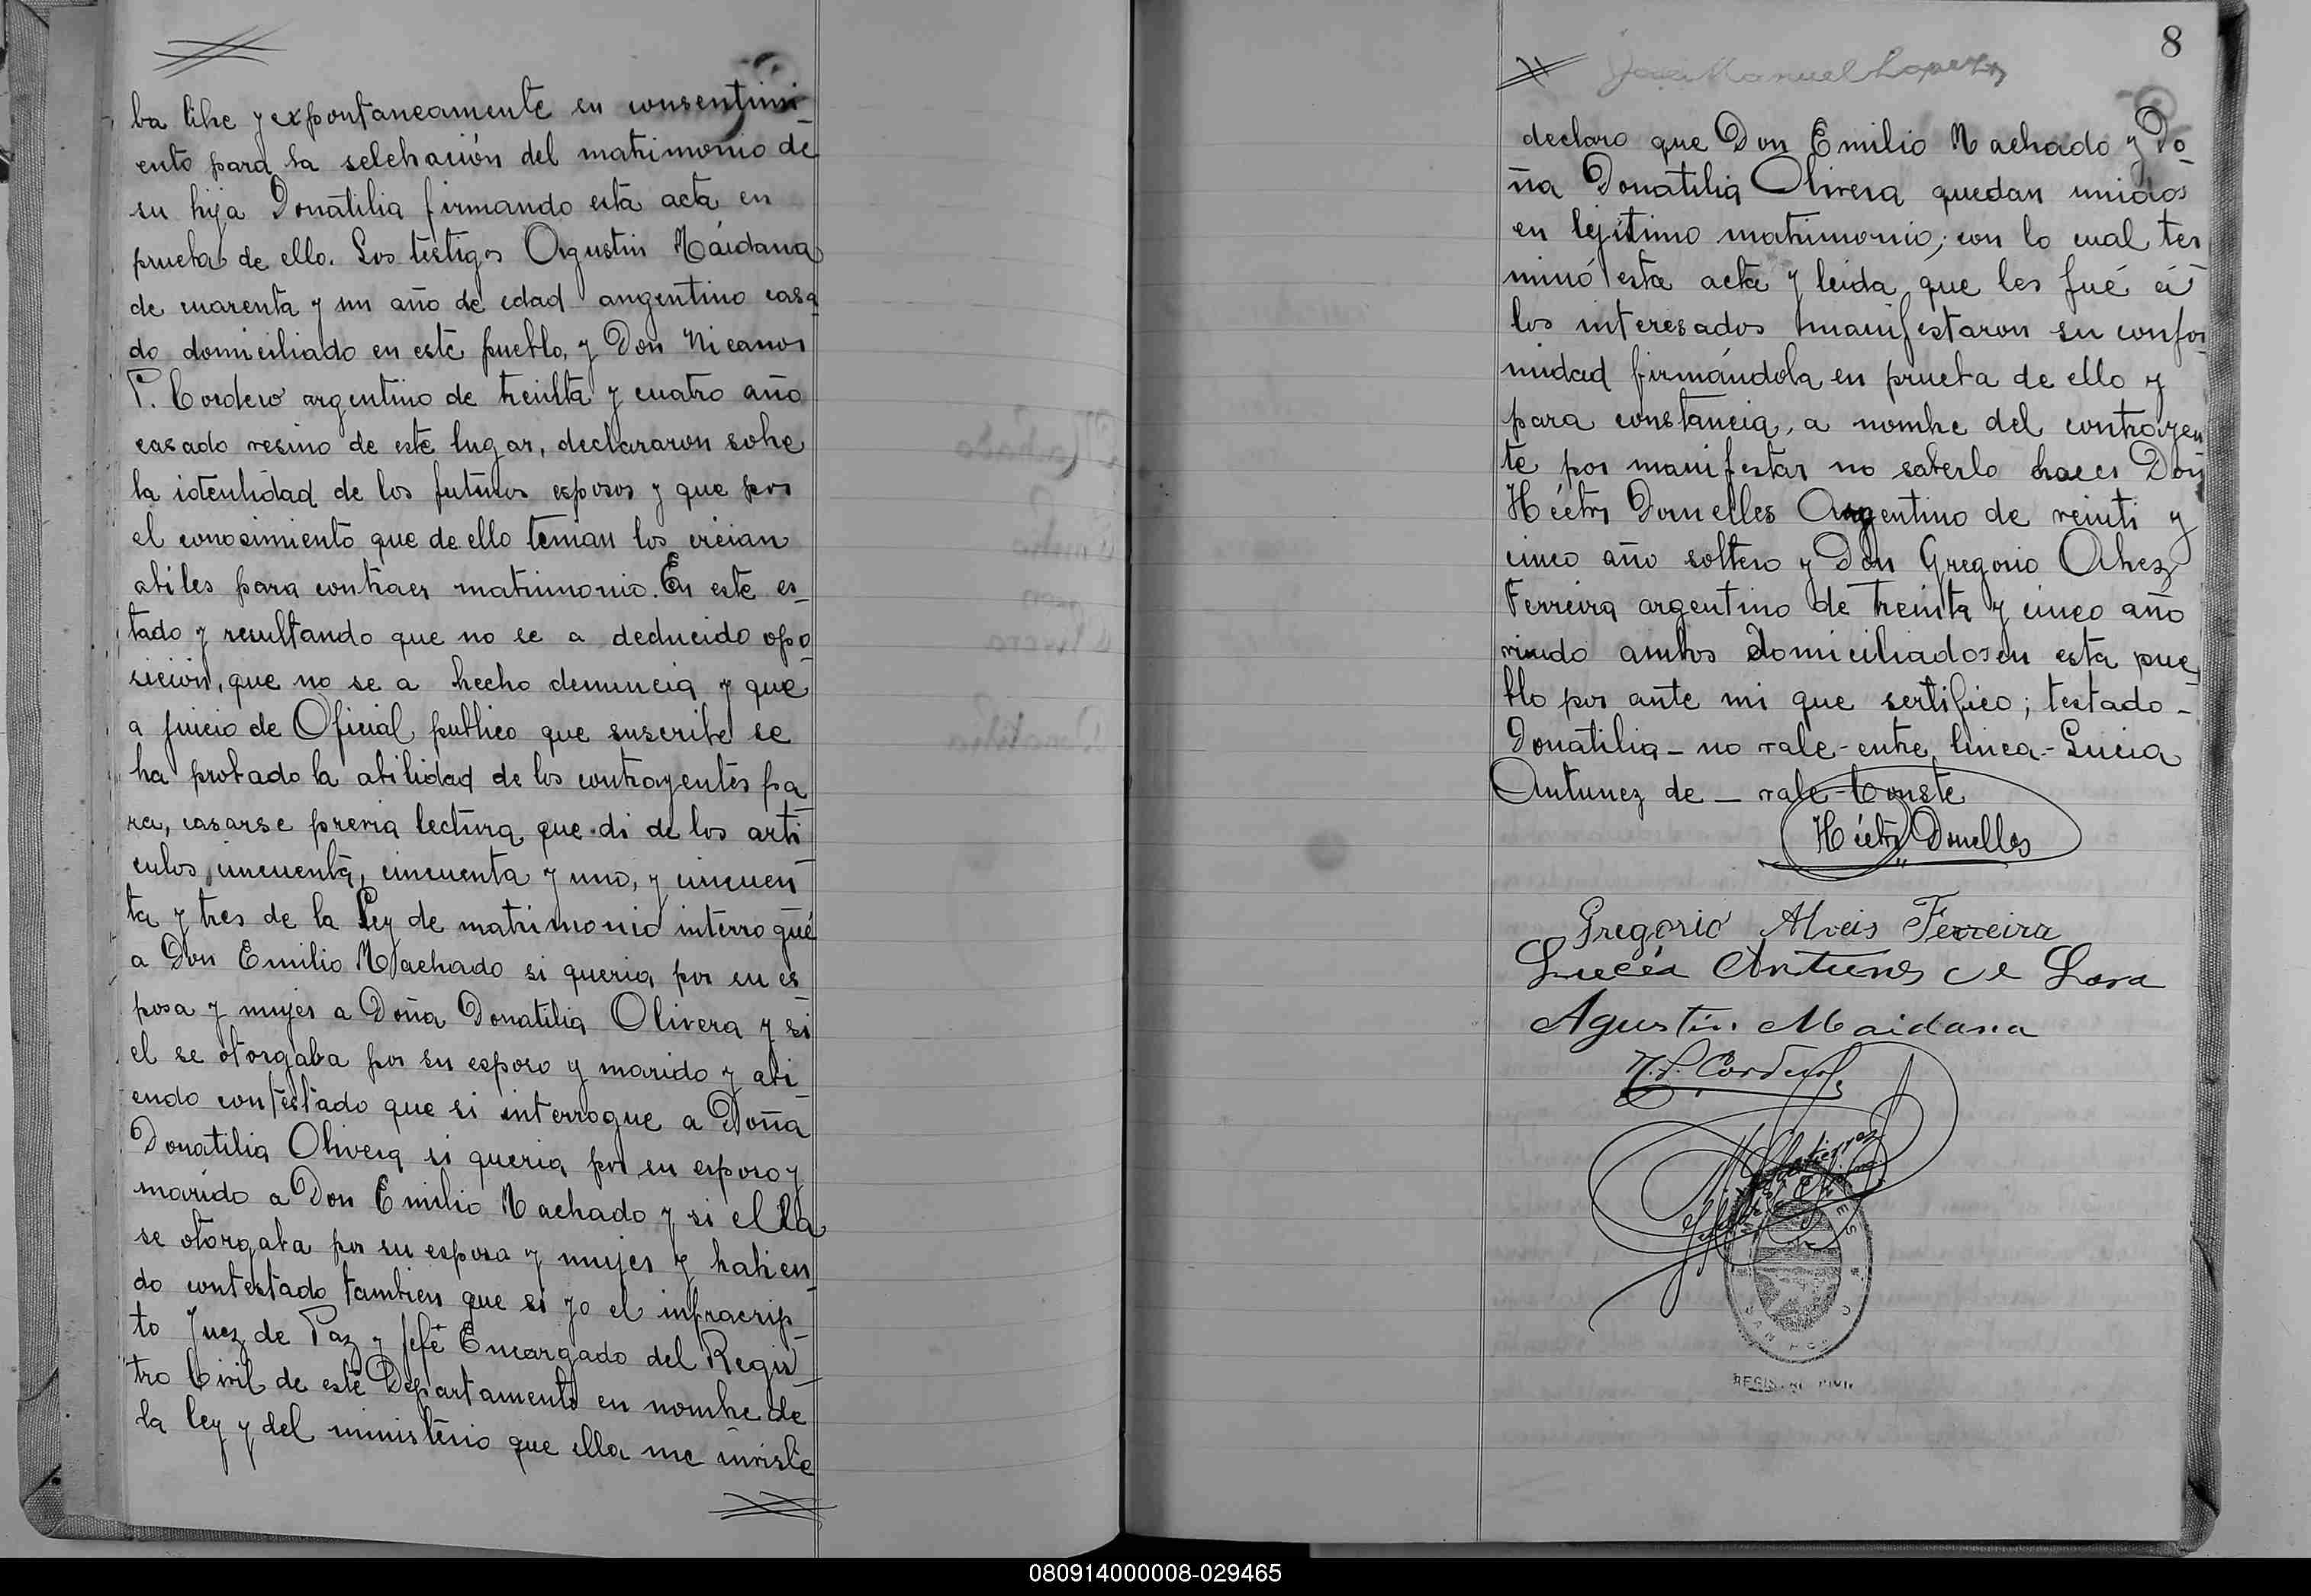 ba libre y expontaneamente su consentimi
ento para la selebración del matrimonio de
su hija Donatilia firmando esta acta en
prueba de ello. Los testigos Agustin Máidana
de cuarenta y un año de edad argentino casa
do domiciliado en este pueblo, y Don Nicanor
P. Cordero argentino de treinta y cuatro año
casado vesino de este lugar, declararon sobre
la identidad de los futuros esposos y que por
el conosimiento que de ello tenian los creian
abiles para contraer matrimonio. En este es_
tado y resultando que no se a deducido opo
sición, que no se a hecho denuncia y que
a juicio de Oficial publico que suscribe se
ha probado la abilidad de los contrayentes pa
ra, casarse previa lectura que di de los arti
culos cincuenta, cincuenta y uno, y cincuen
ta y tres de la Ley de matrimonio interrogué
a Don Emilio Machado si queria por su es
posa y mujer a Doña Donatilia Olivera y si
el se otorgaba por su esposo y marido y abi
endo contestado que si interrogue a Doña
Donatilia Olivera si queria por su esposo y
marido a Don Emilio Machado y si ella
se otorgaba por su esposa y mujer y habien
do contestado tambien que si yo el infracrip
to Juez de Paz y Jefe Encargado del Regis
tro Civil de este Departamento en nombre de
la ley y del ministerio que ella me inviste
8
José Manuel Lopez
declaro que Don Emilio Machado y Do_
ña Donatilia Olivera quedan unidos
en lejitimo matrimonio; con lo cual ter
minó esta acta y leida que les fué á
los interesados manifestaron su confor
midad firmándola en prueba de ello y
para constancia, a nombre del contrayen
te por manifestar no saberlo hacer Don
Héctor Dornelles Argentino de veinti y
cinco año soltero y Don Gregorio Alvez
Ferreira argentino de treinta y cinco año
viudo ambos domiciliados en esta pue
blo por ante mi que sertifico; testado_
Donatilia_ no vale-entre linea-Lucia
Antunez de _ vale-Conste
Héctor Dornelles
Gregorio Alveis Ferreira
Lucía Antunes de Lara
Agustín Maidana
N. P. Cordero
REGISTRO CIVIL
080914000008-029465